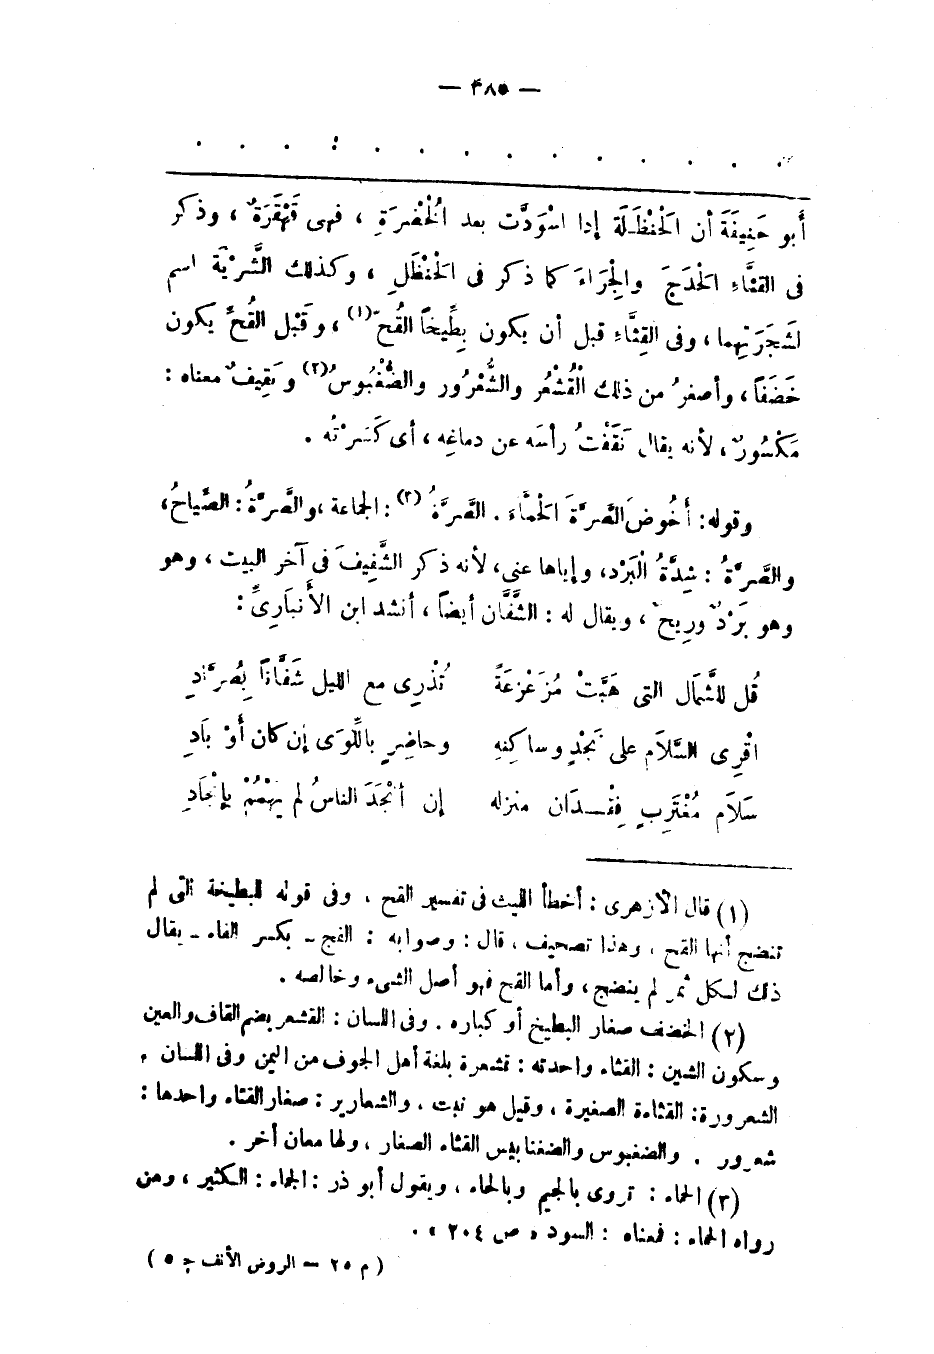 — ٣٨٥ —
. . . . . . . . . . . . . .
أبو حَنِيفَةَ أن الْحَنْظَلَة إذا اسْوَدَّت بعد الْخُضْرَةِ ، فهى قَهْقَرَةٌ ، وذكر
فى القثَّاءِ الْحَدَجَ والْجِرَاءَ كما ذكر فى الْحَنْظَلِ ، وكذلك الشَّرْيَة اسم
لشَجَرَتِهما ، وفى القِثَّاءِ قبل أن يكون بِطِّيخاً القُحّ (١) ، وقَبْل القُحِّ يكون
خَضَفاً ، وأصغرُ من ذلك الْقُشْعُر والشُّعْرُور والضُّغْبُوسُ (٢) ونَقِيفٌ معناه :
مَكْسُورٌ ، لأنه يقال نَقَفْتُ رأسَه عن دماغِه ، أى كَسَرْتُه .
وقوله: أخُوض الصَّرَّةَ الْحَمَّاءَ . الصَّرَّةُ (٣) : الجماعة ، والصَّرَّةُ : الصِّياحُ ،
والصَّرَّةُ : شِدَّةُ الْبَرْد، وإياها عنى، لأنه ذكر الشَّفِيفَ فى آخر البيت ، وهو
وهو بَرْدٌ وريحٌ ، ويقال له : الشَّفَّان أيضاً ، أنشد ابن الأَنبَارِىِّ :
قُل للشَّمَال التى هَبَّتْ مُزَعْزِعَةً تُذْرِى مع الليل شَفَّاناً بِصُرَّادِ
اقْرِى السَّلاَم على نَجْدٍ وساكِنِهِ وحاضِرٍ باللِّوَى إن كان أوْ بَادِ
سَلاَم مُغْتَرِبٍ فِقْـدَان منزله إن أنْجَدَ الناسُ لم يَهْمُمْ بإنْجَادِ
(١) قال الأزهرى : أخطأ الليث فى تفسير القح ، وفى قوله للبطيخة التى لم
تنضج أنها القح ، وهذا تصحيف ، قال : وصوابه : الفج ـ بكسر الفاء ـ يقال
ذلك لكل ثمر لم ينضج ، وأما القح فهو أصل الشىء وخالصه .
(٢) الخضف صغار البطيخ أو كباره . وفى اللسان : القشعر بضم القاف والعين
وسكون الشين : القثاء واحدته : قشعرة بلغة أهل الجوف من اليمن وفى اللسان ,
الشعرورة: القثاءة الصغيرة ، وقيل هو نبت . والشعارير : صغار القثاء واحدها :
شعرور . والضغبوس والضغنابيس القثاء الصغار ، ولها معان أخر .
(٣) الحماء : تروى بالجيم وبالحاء ، ويقول أبو ذر : الجماء : الكثير ، ومن
رواه الحماء : فمعناه : السود « ص ٢٠٤ » .
( م ٢٥ — الروض الأنف ج ٥ )